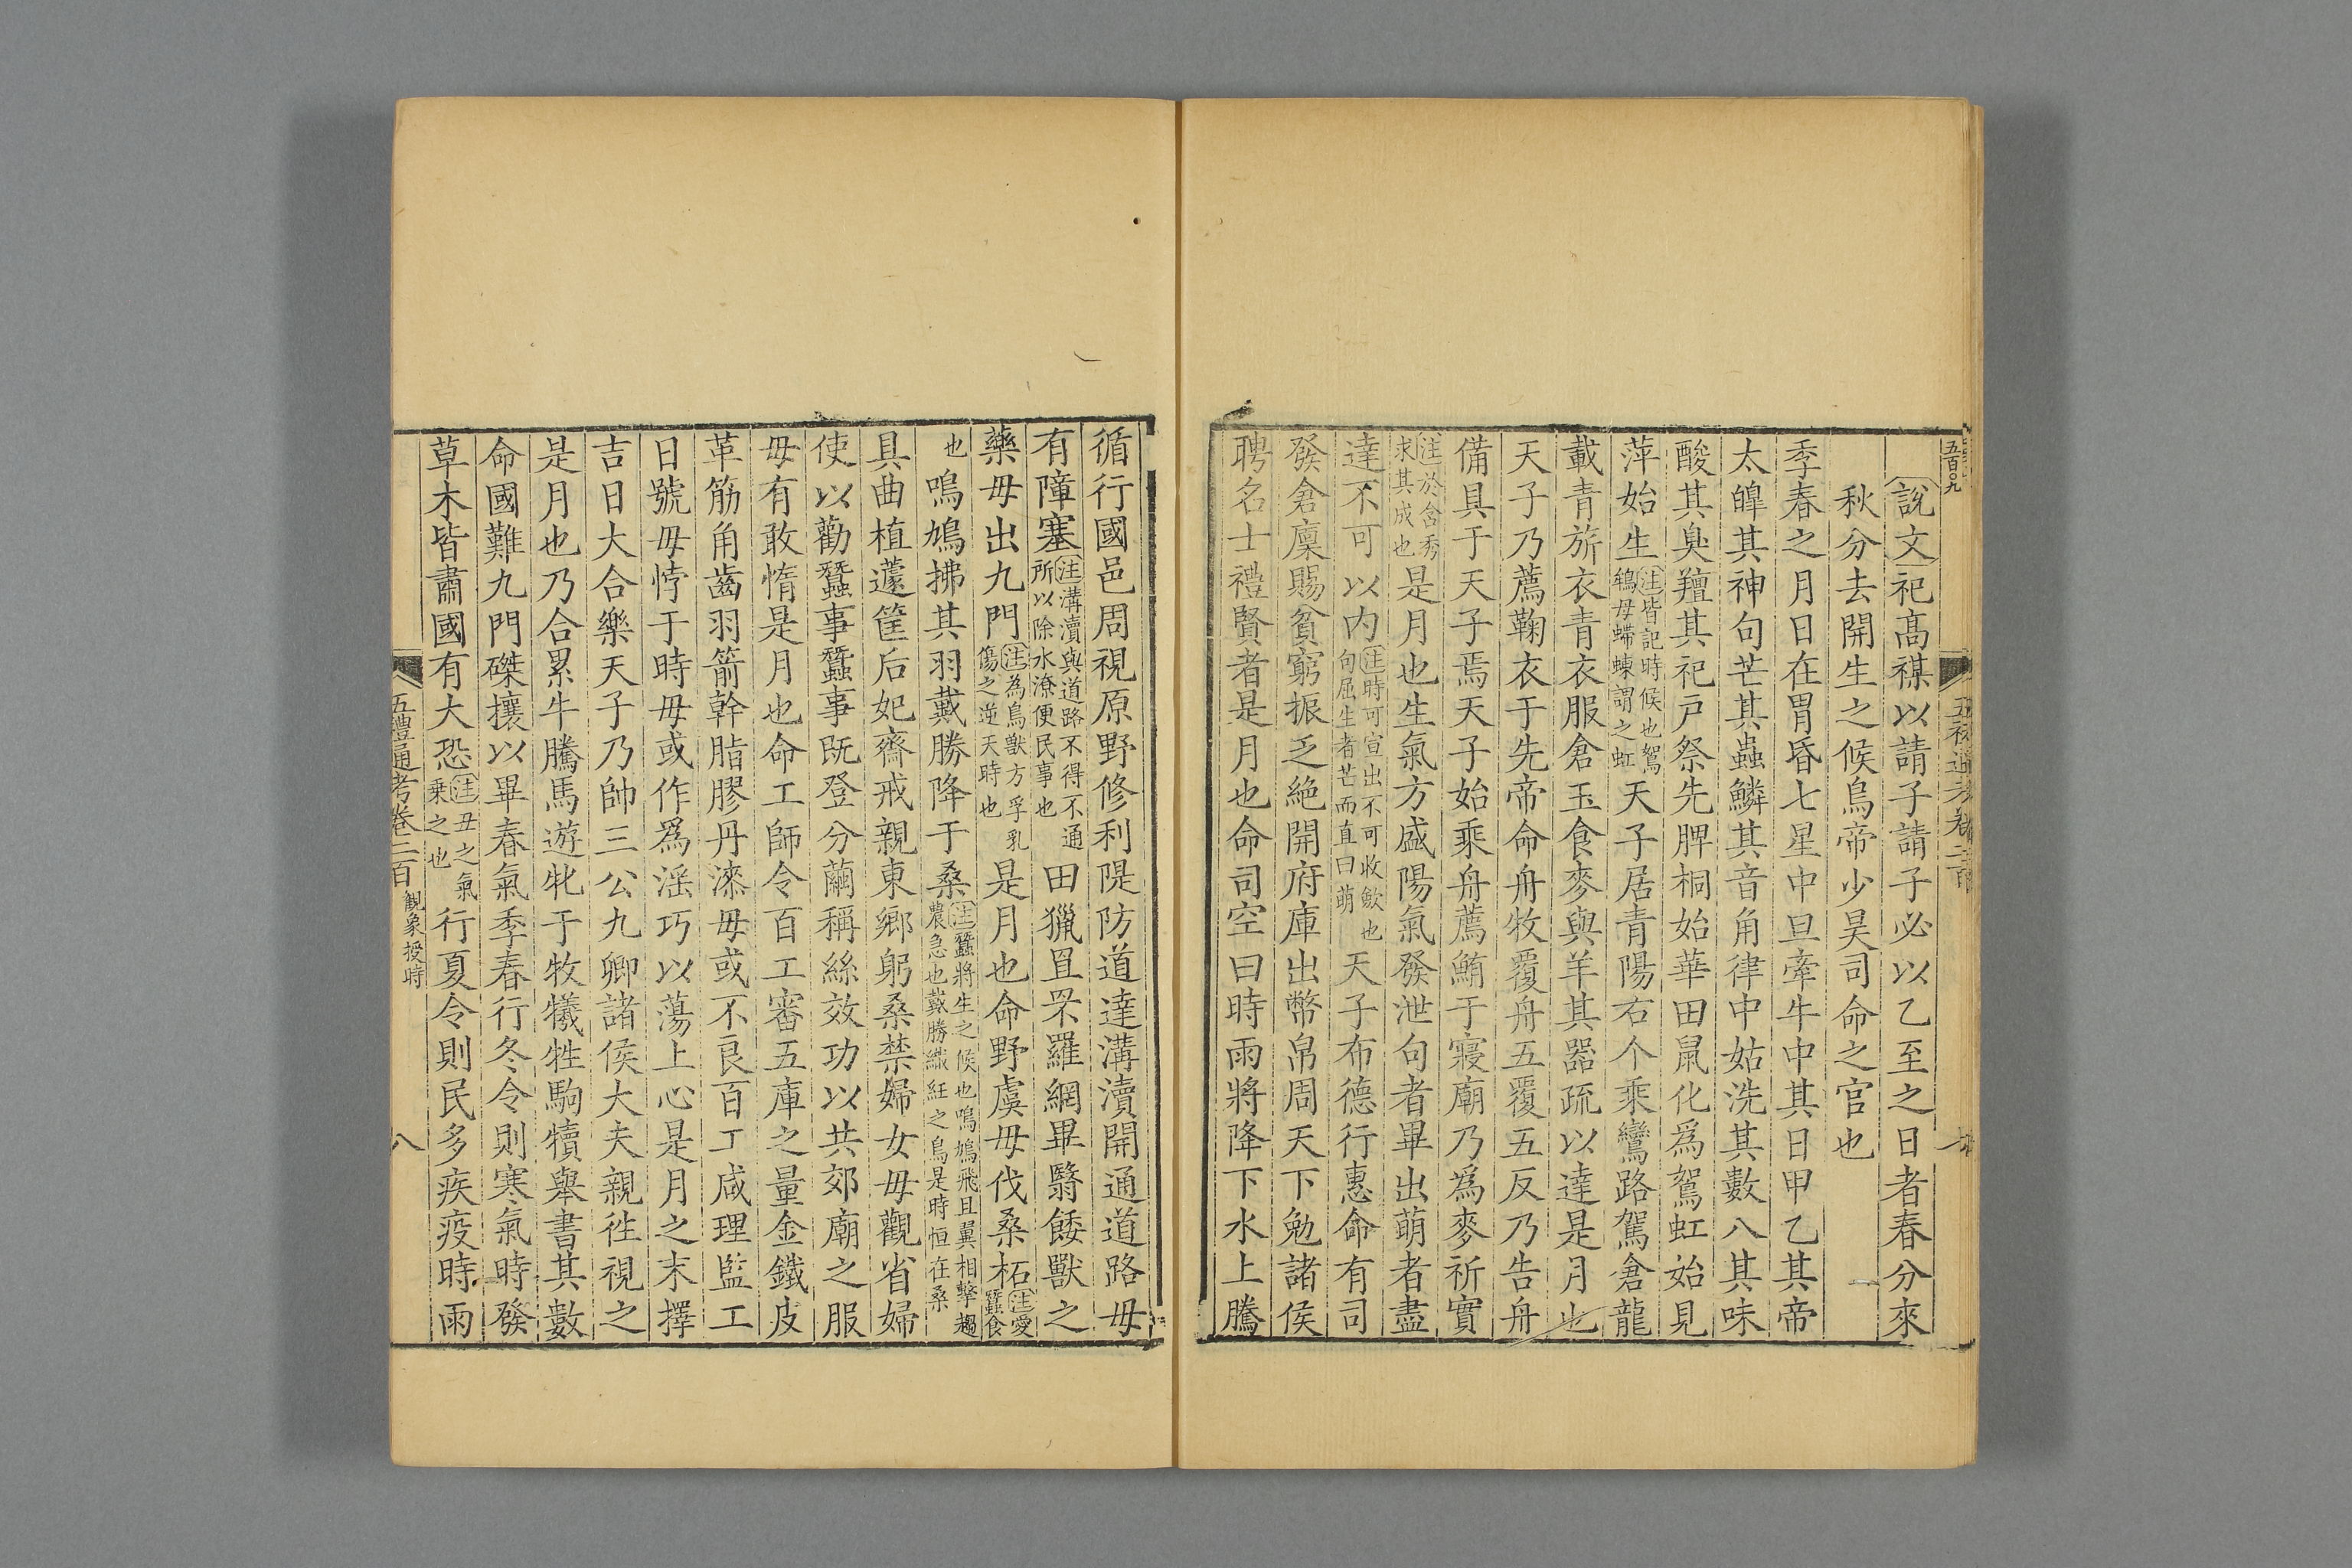 五百〇九
說文祀高禖以請子請子必以乙至之日者春分來
秋分去開生之候鳥帝少昊司命之官也
季春之月日在胃昏七星中旦牽牛中其日甲乙其帝
太皥其神句芒其蟲鱗其音角律中姑洗其數八其味
酸其臭羶其祀戸祭先脾桐始華田鼠化為鴽虹始見
萍始生注皆記時候也鴽鴾毋螮蝀謂之虹天子居青陽右个乘鸞路駕倉龍
載青旂衣青衣服倉玉食麥與羊其器疏以達是月也
天子乃薦鞠衣于先帝命舟牧覆舟五覆五反乃告舟
備具于天子焉天子始乘舟薦鮪于寢廟乃為麥祈實
注於含秀求其成也是月也生氣方盛陽氣發泄句者畢出萌者盡
達不可以内注時可宣出不可收歛也句屈生者芒而直曰萌天子布德行惠命有司
發倉廩賜貧窮振乏絕開府庫出幣帛周天下勉諸侯
聘名士禮賢者是月也命司空曰時雨將降下水上騰
循行國邑周視原野修利隄防道達溝瀆開通道路毋
有障塞注溝瀆與道路不得不通所以除水潦便民事也田獵罝罘羅網畢翳餧獸之
藥毋出九門注為鳥獸方孚乳傷之逆天時也是月也命野虞毋伐桑柘注愛蠶食
也鳴鳩拂其羽戴勝降于桑注蠶將生之候也鳴鳩飛且翼相擊趨農急也戴勝織紝之鳥是時恒在桑
具曲植籧筐后妃齋戒親東鄉躬桑禁婦女毋觀省婦
使以勸蠶事蠶事既登分繭稱絲效功以共郊廟之服
毋有敢惰是月也命工師令百工審五庫之量金鐵皮
革筋角齒羽箭幹脂膠丹漆毋或不良百工咸理監工
日號毋悖于時毋或作為淫巧以蕩上心是月之末擇
吉日大合樂天子乃帥三公九卿諸侯大夫親徃視之
是月也乃合累牛騰馬遊牝于牧犧牲駒犢舉書其數
命國難九門磔攘以畢春氣季春行冬令則寒氣時發
草木皆肅國有大恐注丑之氣乗之也行夏令則民多疾疫時雨
五禮通考卷二百 觀象授時 八